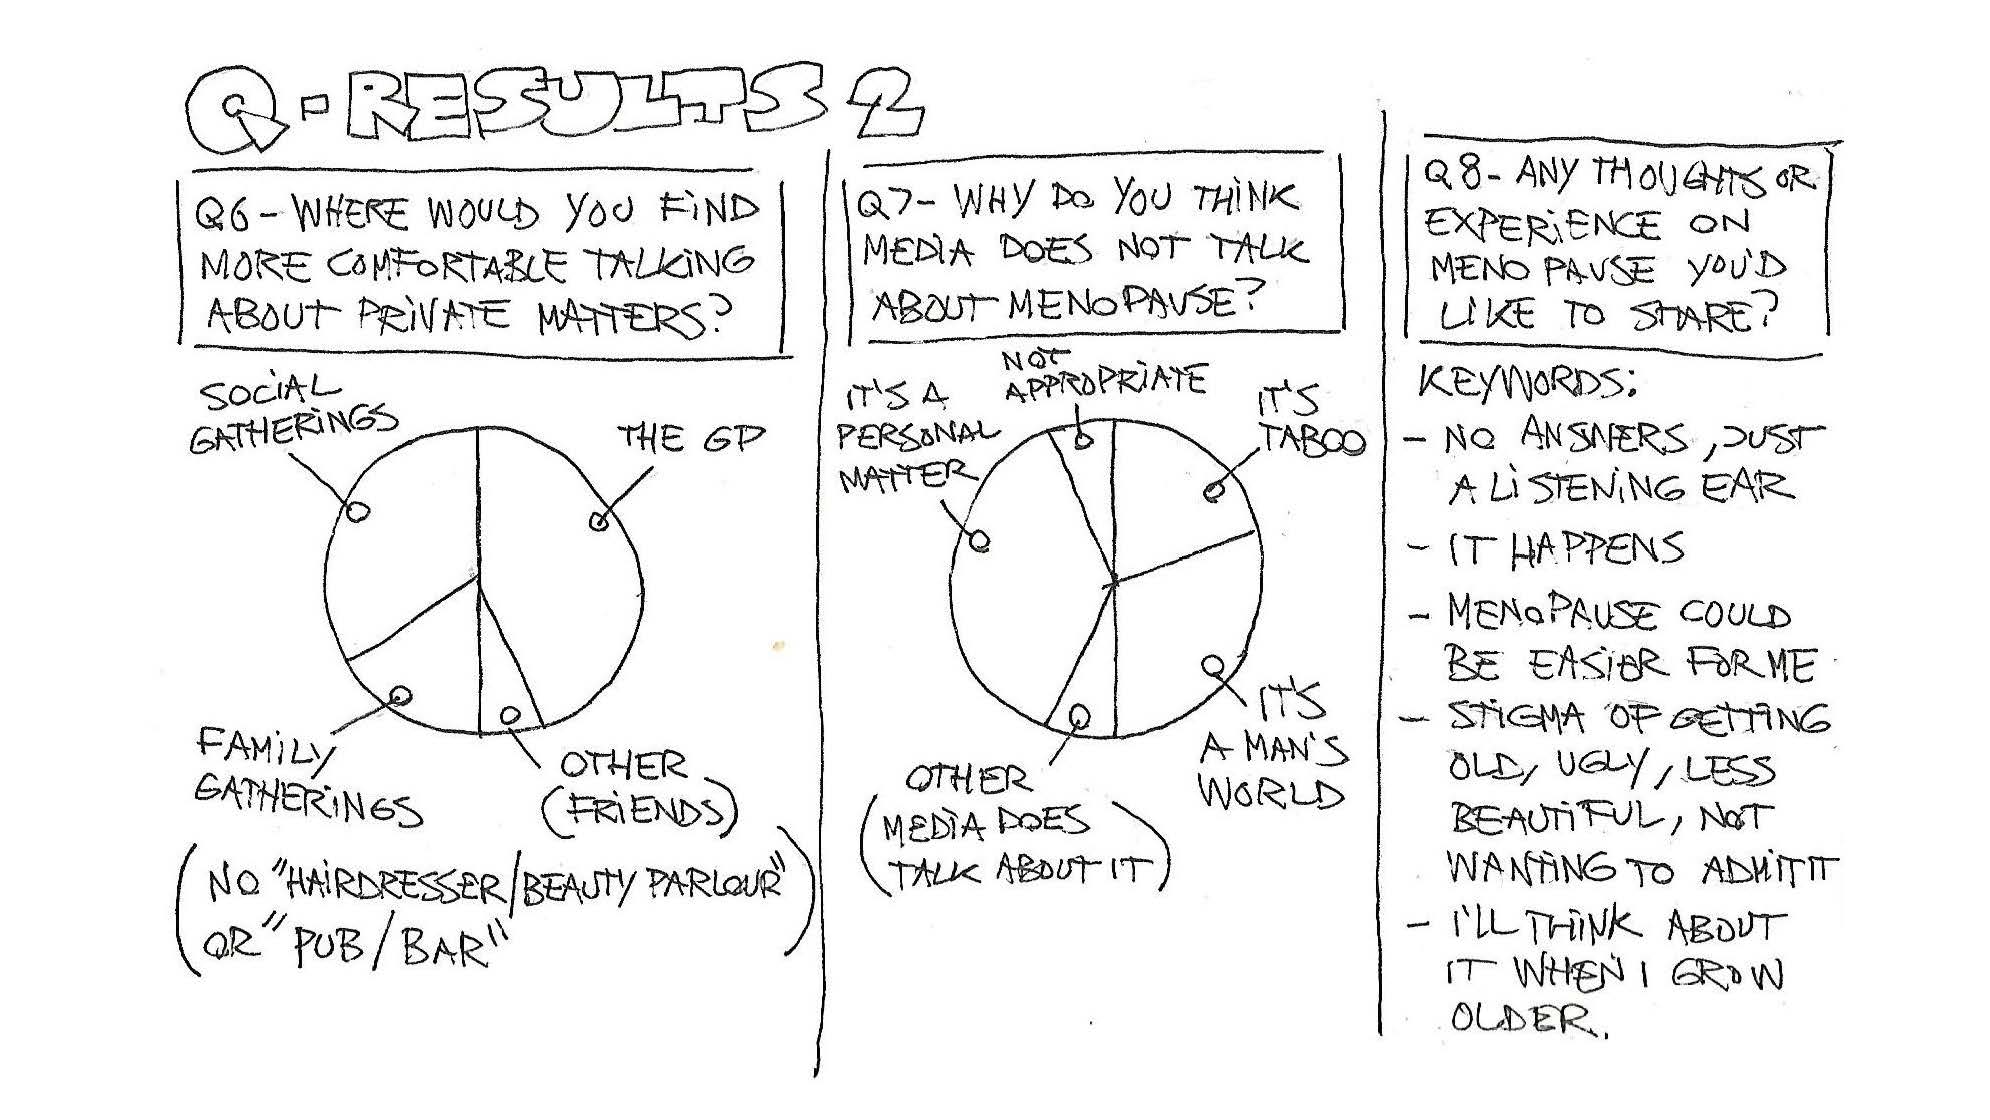 Q-RESULTS 2
Q6 - WHERE WOULD YOU FIND
MORE COMFORTABLE TALKING
ABOUT PRIVATE MATTERS?
SOCIAL
GATHERINGS
THE GP
FAMILY
GATHERINGS
OTHER
(FRIENDS)
(NO "HAIRDRESSER/BEAUTY PARLOUR"
OR "PUB/BAR")
Q7 - WHY DO YOU THINK
MEDIA DOES NOT TALK
ABOUT MENOPAUSE?
NOT
APPROPRIATE
IT'S A
PERSONAL
MATTER
IT'S
TABOO
IT'S
A MAN'S
WORLD
OTHER
(MEDIA DOES
TALK ABOUT IT)
Q8 - ANY THOUGHTS OR
EXPERIENCE ON
MENOPAUSE YOU'D
LIKE TO SHARE?
KEYWORDS:
- NO ANSWERS, JUST
A LISTENING EAR
- IT HAPPENS
- MENOPAUSE COULD
BE EASIER FOR ME
- STIGMA OF GETTING
OLD, UGLY, LESS
BEAUTIFUL, NOT
WANTING TO ADMIT IT
- I'LL THINK ABOUT
IT WHEN I GROW
OLDER.